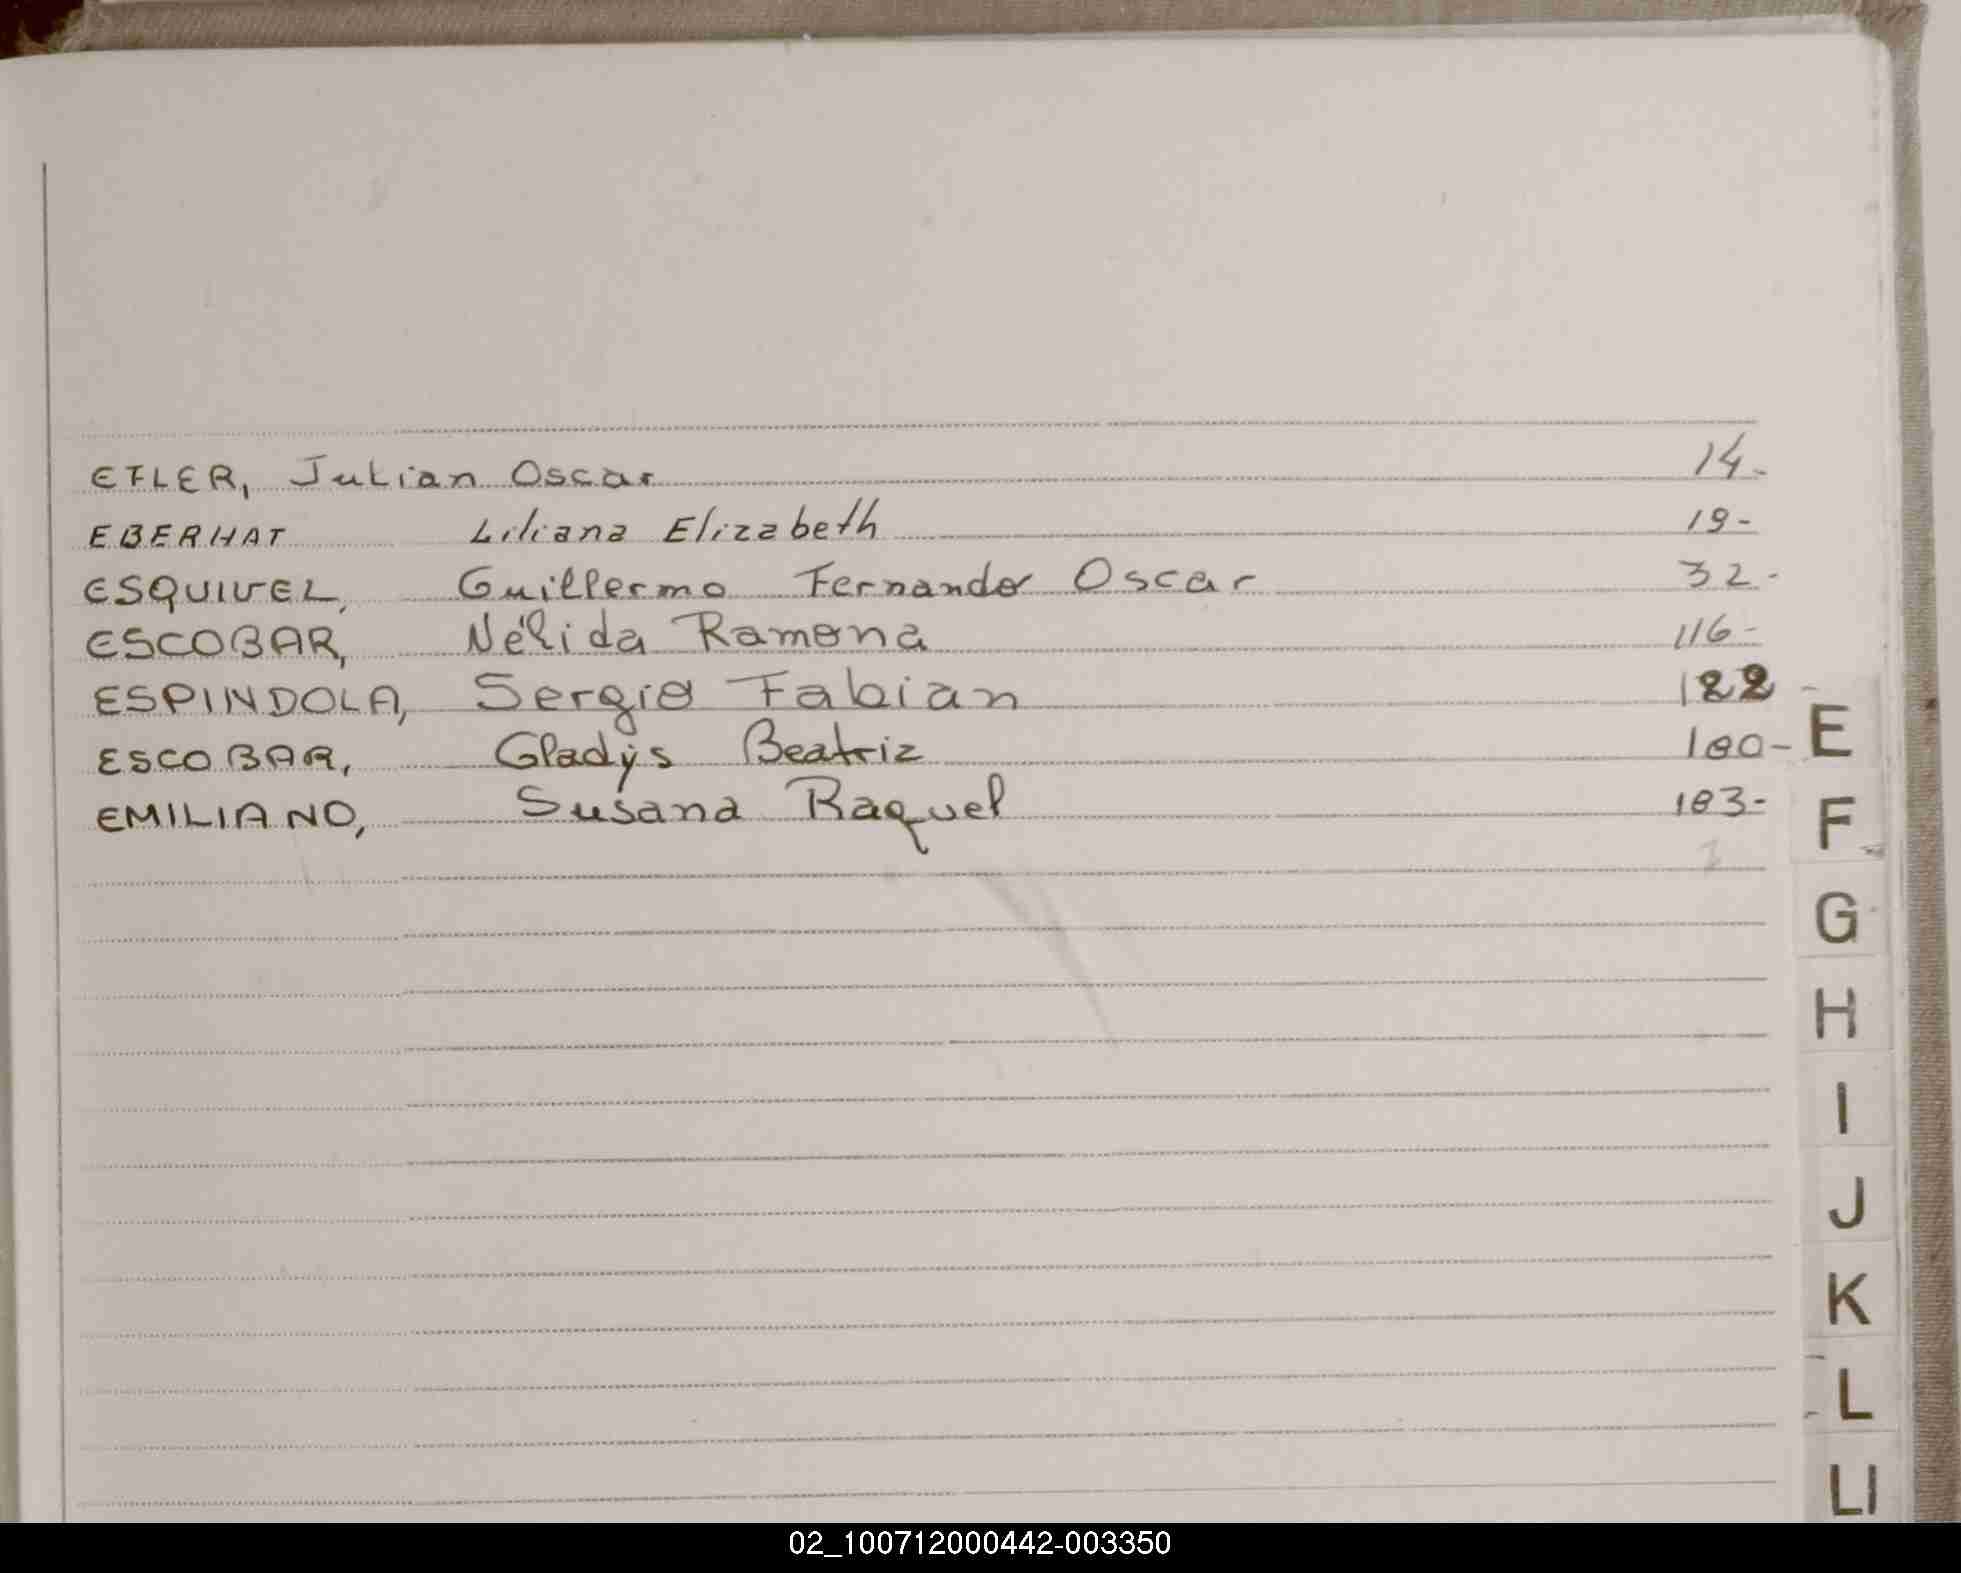 EFLER, Julian Oscar 14-
EBERHAT Liliana Elizabeth 19-
ESQUIVEL, Guillermo Fernando Oscar 32-
ESCOBAR, Nélida Ramona 116-
ESPINDOLA, Sergio Fabian 122-
ESCOBAR, Gladys Beatriz 180-
EMILIANO, Susana Raquel 183-
E
F
G
H
I
J
K
L
Ll
02_100712000442-003350